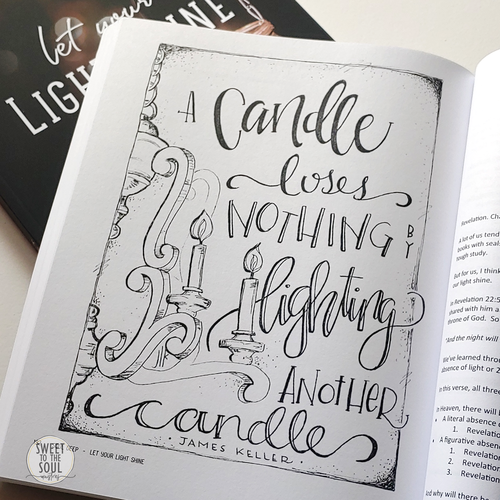 let your
LIGHT
A
candle
loses
NOTHING
BY
lighting
ANOTHER
candle
JAMES KELLER
- LET YOUR LIGHT SHINE
SWEET
TO THE
SOUL
Revelation. Cha
A lot of us tend
books with seal
tough study.
But for us, I think
our light shine.
In Revelation 22:5
shared with him a
throne of God. So
"And the night will
We've learned throu
absence of light or 2
In this verse, all three
In Heaven, there will
A literal absence
1. Revelation
A figurative absenc
1. Revelatio
2. Revelatio
3. Revelatio
And why will there